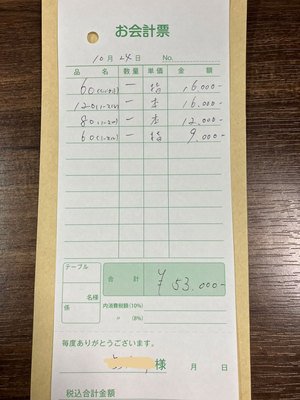 お会計票
10月24日 No.
品名 数量 単価 金額
60 一 16,000-
120 一 本 16,000-
80 一 本 12,000-
60 一 9,000-
テーブル
名様
係
合計 ¥53.000-
内消費税額(10%)
〃 (8%)
毎度ありがとうございます。
様 月 日
税込合計金額